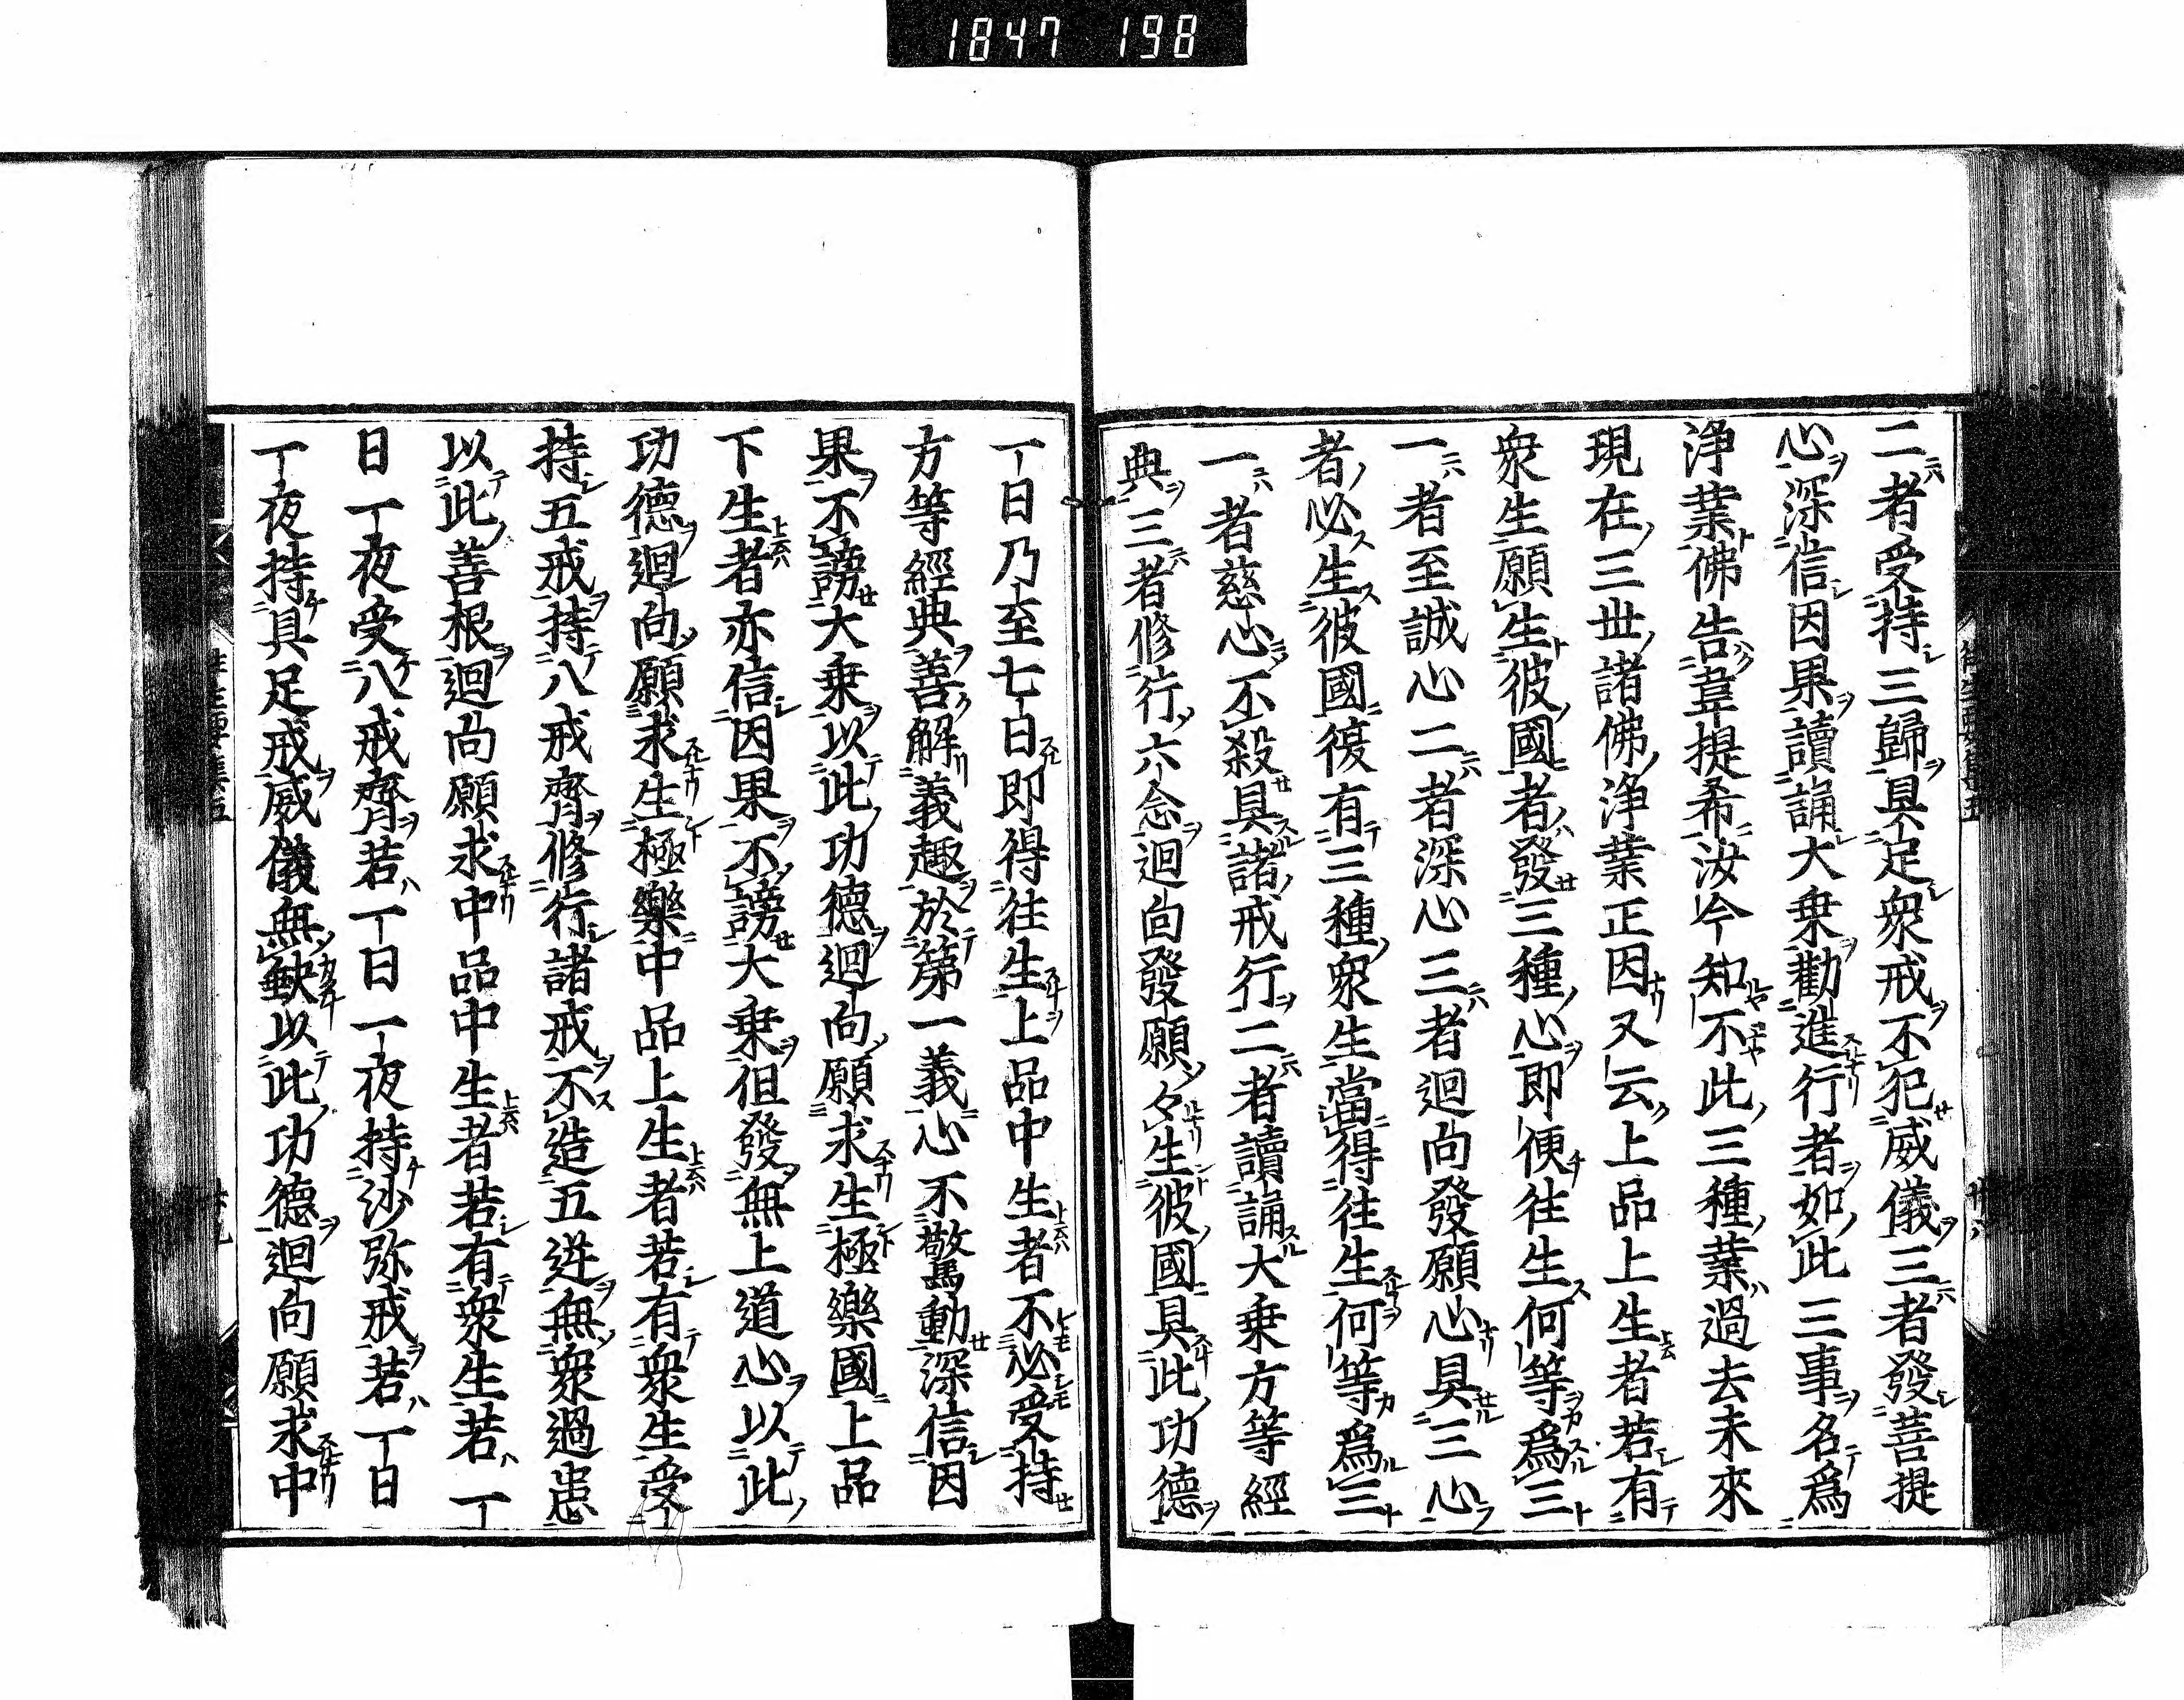 1847 198
二者受持三歸具足衆戒不犯威儀三者發菩提
心深信因果讀誦大乗勸進行者如此三事名爲
浄業佛告韋提希汝今知不此三種業過去未來
現在三世諸佛浄業正因又云上品上生者若有
衆生願生彼國者發三種心即便往生何等爲三
一者至誠心二者深心三者迴向發願心具三心
者必生彼國復有三種衆生當得往生何等爲三
一者慈心不殺具諸戒行二者讀誦大乗方等經
典三者修行六念迴向發願々生彼國具此功德
一日乃至七日即得往生上品中生者不必受持
方等經典善解義趣於第一義心不驚動深信因
果不謗大乗以此功德迴向願求生極樂國上品
下生者亦信因果不謗大乗但發無上道心以此
功德迴向願求生極樂中品上生者若有衆生受
持五戒持八戒齊修行諸戒不造五逆無衆過患
以此善根迴向願求中品中生者若有衆生若一
日一夜受八戒齊若一日一夜持沙弥戒若一日
一夜持具足戒威儀無缺以此功德迴向願求中